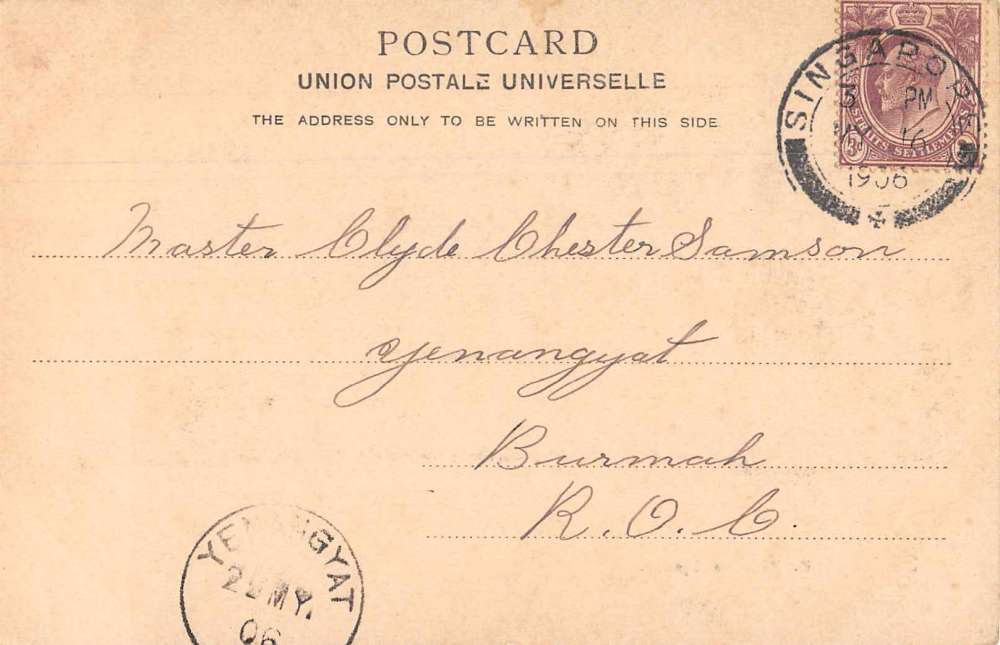 POSTCARD
UNION POSTALE UNIVERSELLE
THE ADDRESS ONLY TO BE WRITTEN ON THIS SIDE
SINGAPORE
3 PM
MY 16
1906
STRAITS SETTLEMENTS
Master Clyde Chester Samson
Yenangyat
Burmah
R.O.C.
YENANGYAT
MY.
06